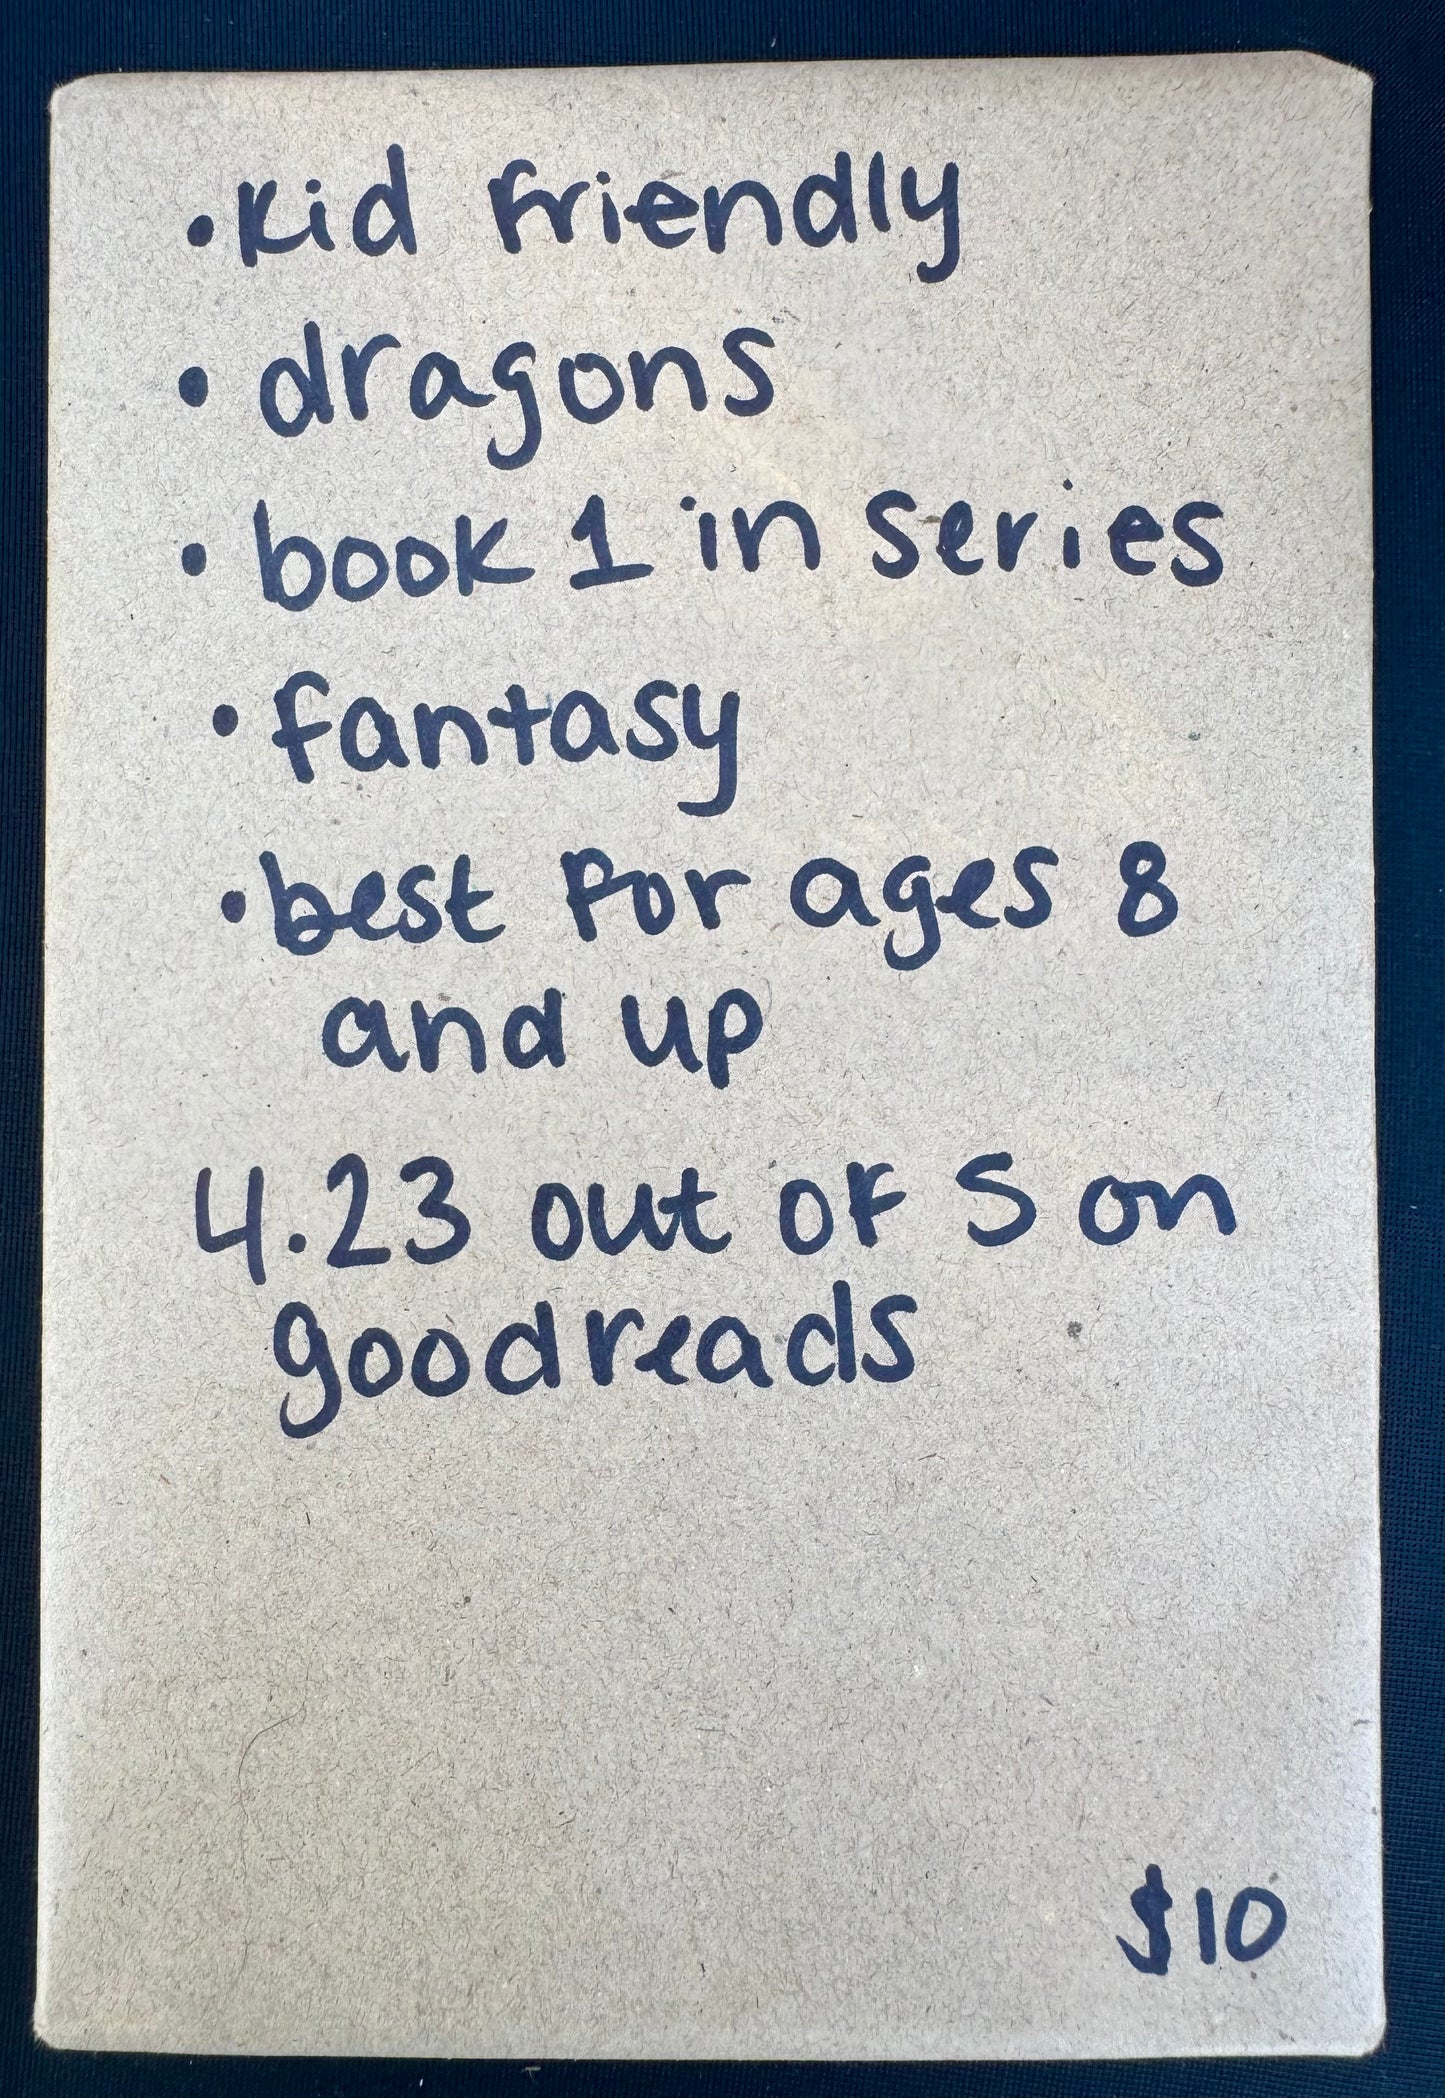 •Kid friendly
• dragons
• book 1 in series
• fantasy
• best for ages 8
and up
4.23 out of 5 on
goodreads
$10